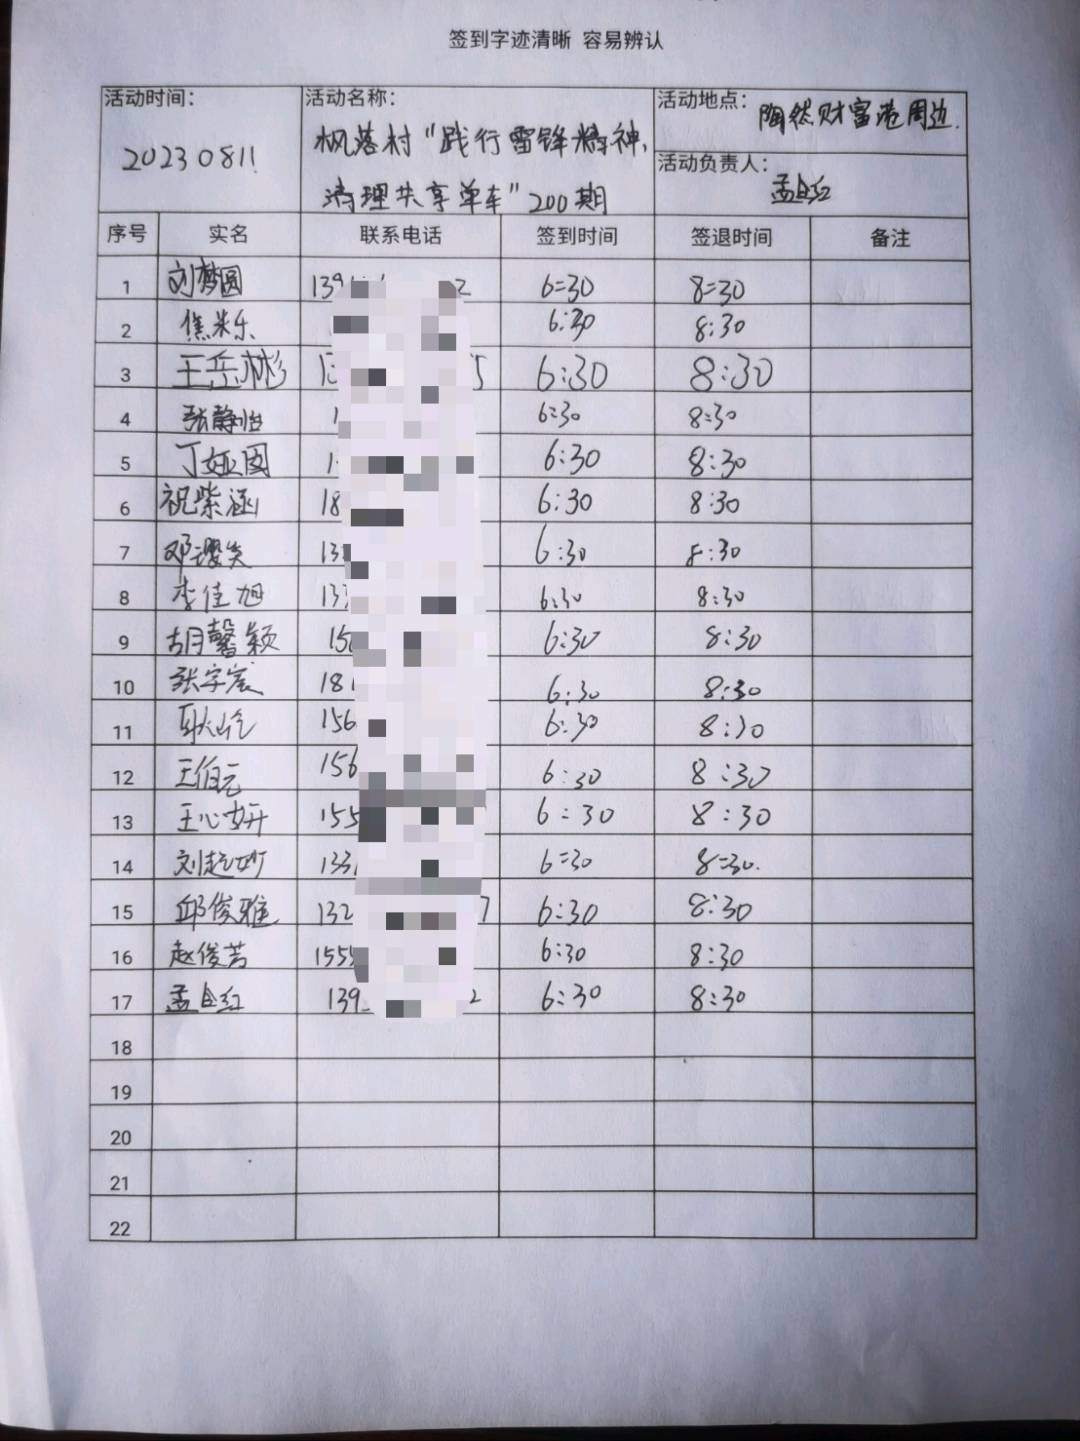 签到字迹清晰 容易辨认
活动时间: 活动名称: 活动地点: 陶然财富港周边.
20230811 枫落村"践行雷锋精神, 活动负责人:
清理共享单车"200期 孟自红
序号 实名 联系电话 签到时间 签退时间 备注
1 刘梦圆 139 2 6=30 8=30
2 焦米乐 6:30 8:30
3 王岳彬 13 5 6:30 8:30
4 张静怡 1 6:30 8:30
5 丁娅图 1 6:30 8:30
6 祝紫涵 18 6:30 8:30
7 邓 133 6:30 8:30
8 李佳旭 133 6:30 8:30
9 胡馨颖 150 6:30 8:30
10 张宇宸 181 6:30 8:30
11 耿屹 156 6:30 8:30
12 王伯元 156 6:30 8:30
13 王心妍 155 6:30 8:30
14 刘起妙 133 6=30 8=30.
15 邱俊雅 132 7 6:30 8:30
16 赵俊芳 1555 6:30 8:30
17 孟自红 139 2 6:30 8:30
18
19
20
21
22